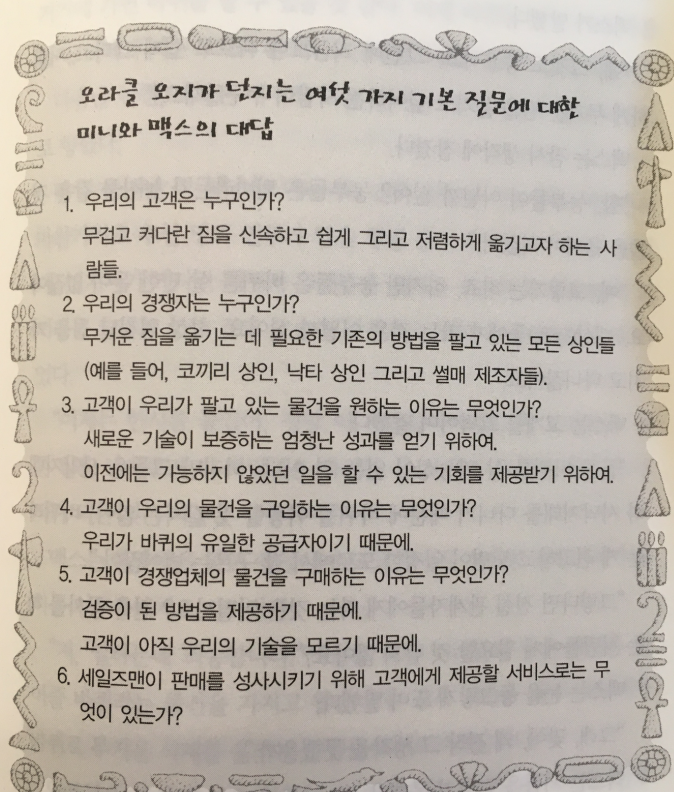 오라클 오지가 던지는 여섯 가지 기본 질문에 대한
미니와 맥스의 대답
1. 우리의 고객은 누구인가?
무겁고 커다란 짐을 신속하고 쉽게 그리고 저렴하게 옮기고자 하는 사
람들.
2. 우리의 경쟁자는 누구인가?
무거운 짐을 옮기는 데 필요한 기존의 방법을 팔고 있는 모든 상인들
(예를 들어, 코끼리 상인, 낙타 상인 그리고 썰매 제조자들).
3. 고객이 우리가 팔고 있는 물건을 원하는 이유는 무엇인가?
새로운 기술이 보증하는 엄청난 성과를 얻기 위하여.
이전에는 가능하지 않았던 일을 할 수 있는 기회를 제공받기 위하여.
4. 고객이 우리의 물건을 구입하는 이유는 무엇인가?
우리가 바퀴의 유일한 공급자이기 때문에.
5. 고객이 경쟁업체의 물건을 구매하는 이유는 무엇인가?
검증이 된 방법을 제공하기 때문에.
고객이 아직 우리의 기술을 모르기 때문에.
6. 세일즈맨이 판매를 성사시키기 위해 고객에게 제공할 서비스로는 무
엇이 있는가?